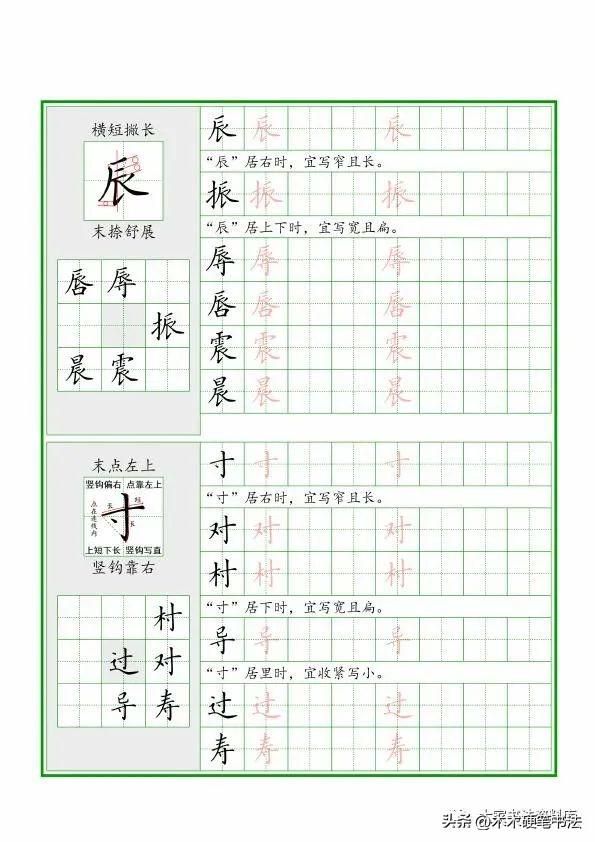 横短撇长
辰
末捺舒展
唇 辱
振
晨 震
辰 辰 辰
“辰”居右时，宜写窄且长。
振 振 振
“辰”居上下时，宜写宽且扁。
辱 辱 辱
唇 唇 唇
震 震 震
晨 晨 晨
末点左上
竖钩偏右 点靠左上
点在连线内
长 短
寸
长
上短下长 竖钩写直
竖钩靠右
村
过 对
导 寿
寸 寸 寸
“寸”居右时，宜写窄且长。
对 对 对
村 村 村
“寸”居下时，宜写宽且扁。
导 导 导
“寸”居里时，宜收紧写小。
过 过 过
寿 寿 寿
头条 @木木硬笔书法